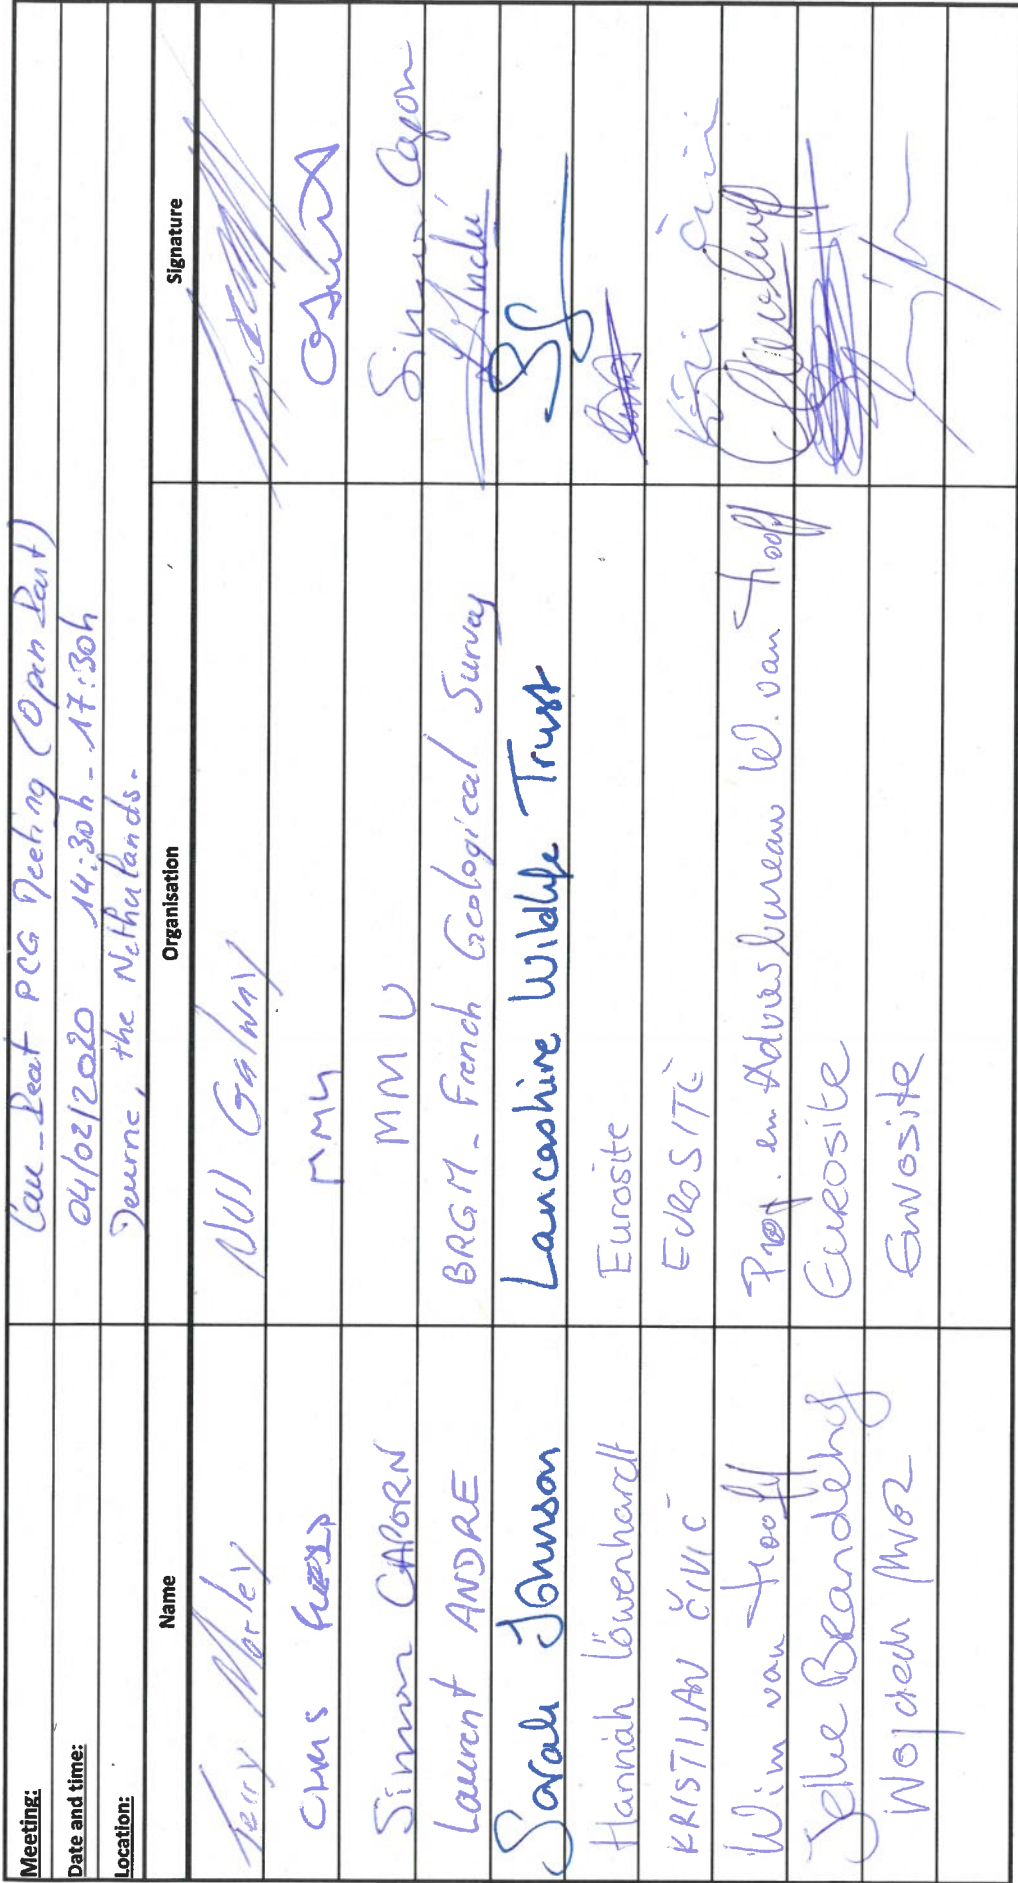 Meeting: Care-Peat PCG Meeting (Open Part)
Date and time: 04/02/2020 14:30h - 17:30h
Location: Deurne, the Netherlands.
Name Organisation Signature
Terry Morley NUI Galway
Chris MMU
Simon CAPORN MMU Simon Caporn
Laurent ANDRE BRGM - French Geological Survey
Sarah Johnson Lancashire Wildlife Trust
Hannah Löwenhardt Eurosite
KRISTIJAN ČIVIĆ EUROSITE
Wim van Hooff en Adviesbureau W. van Hooff
Jelle Brandehof EUROSITE
Eurosite